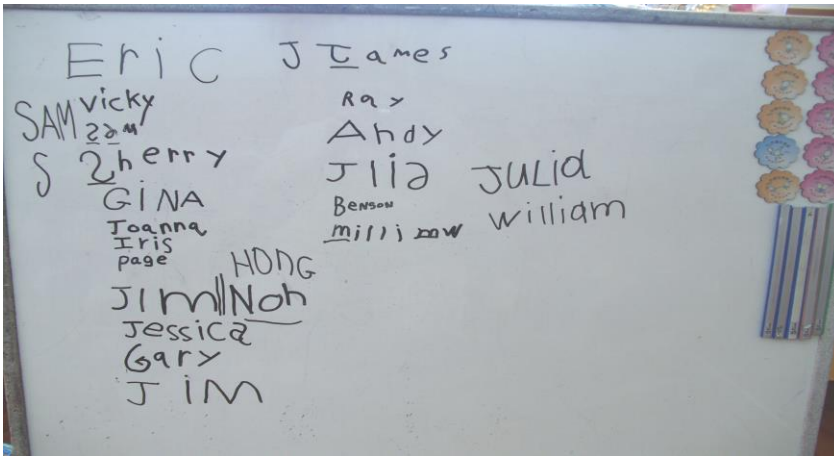 Eric
SAM Vicky
2am
S 2herry
GiNA
Joanna
Iris
page
HONG
JIM||Noh
Jessica
Gary
JiM
J Iames
Ray
Andy
Jlia JULia
Benson
millimw william